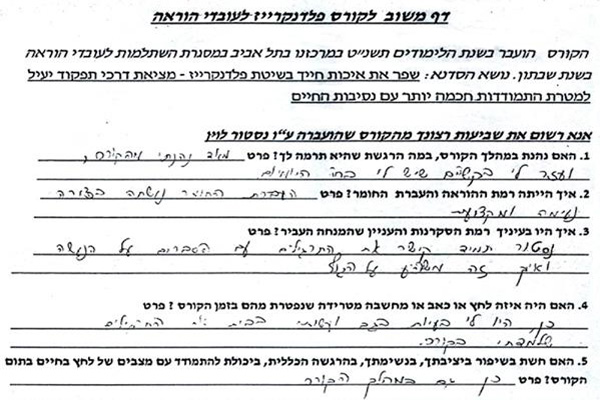 דף משוב לקורס פלדנקרייז לעובדי הוראה
הקורס הועבר בשנת הלימודים תשנ״ט במרכזנו בתל אביב במסגרת השתלמות לעובדי הוראה
בשנת שבתון. נושא הסדנא: שפר את איכות חייך בשיטת פלדנקרייז - מציאת דרכי תפקוד יעיל
למטרת התמודדות חכמה יותר עם נסיבות החיים
אנא רשום את שביעות רצונך מהקורס שהועברה ע״ו נסטור לוין
1. האם נהנת במהלך הקורס, במה הרגשת שהיא תרמה לך? פרט מאד נהנתי מהקורס,
ועזר לי בקשיים שיש לי בחיי היומיום
2. איך הייתה רמת ההוראה והעברת החומר? פרט העברת החומר נעשתה בצורה
נעימה ומקצועית
3. איך היו בעיניך רמת הסקרנות והעניין שהמנחה העביר? פרט
נסטור תמיד קישר את התרגילים עם הסברים על הנושא
ואיך זה משפיע על הגוף
4. האם היה איזה לחץ או כאב או מחשבה מטרידה שנפטרת מהם בזמן הקורס? פרט
כן, היו לי בעיות בגב ועשיתי בבית את התרגילים
שלמדתי בקורס.
5. האם חשת בשיפור ביציבתך, בנשימתך, בהרגשה הכללית, ביכולת להתמודד עם מצבים של לחץ בחיים בתום
הקורס? פרט כן גם במהלך הקורס